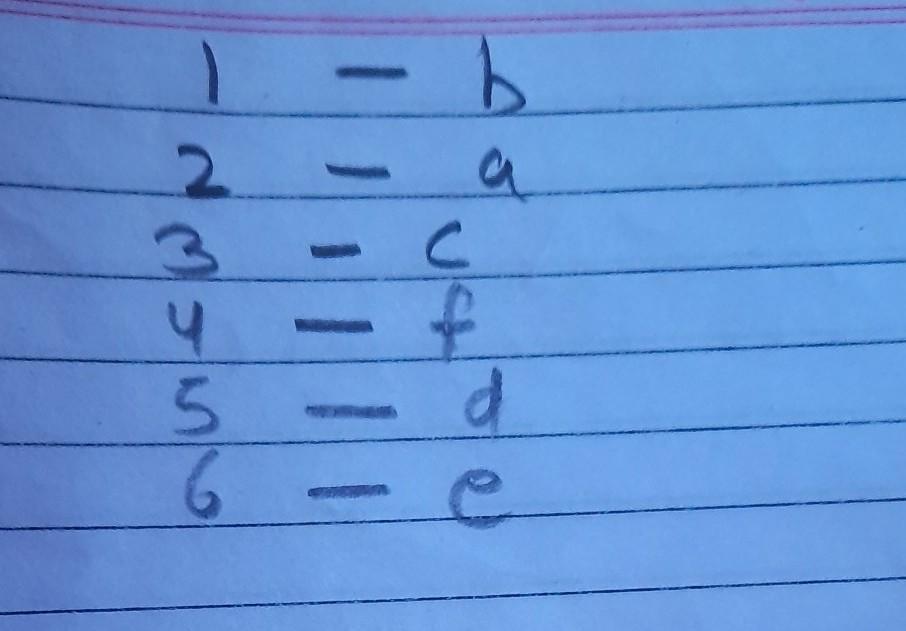 1 - b
2 - a
3 - c
4 - f
5 - d
6 - e